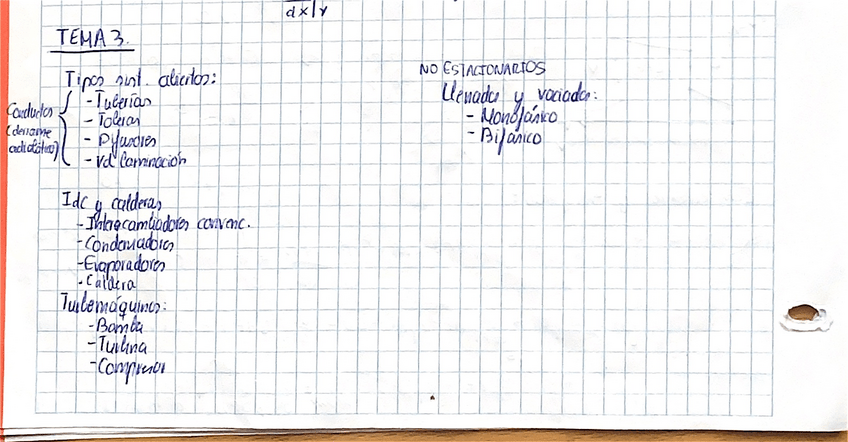 dx/r
TEMA 3.
Tipos sist. abiertos:
Conductos
(derrame
adiabático)
- Tuberías
- Toberas
- Difusores
- Vál laminación
Idc y calderas
- Intercambiadores convenc.
- Condensadores
- Evaporadores
- Caldera
Turbomáquinas:
- Bomba
- Turbina
- Compresor
NO ESTACIONARIOS
Llenados y vaciados:
- Monofásico
- Bifásico